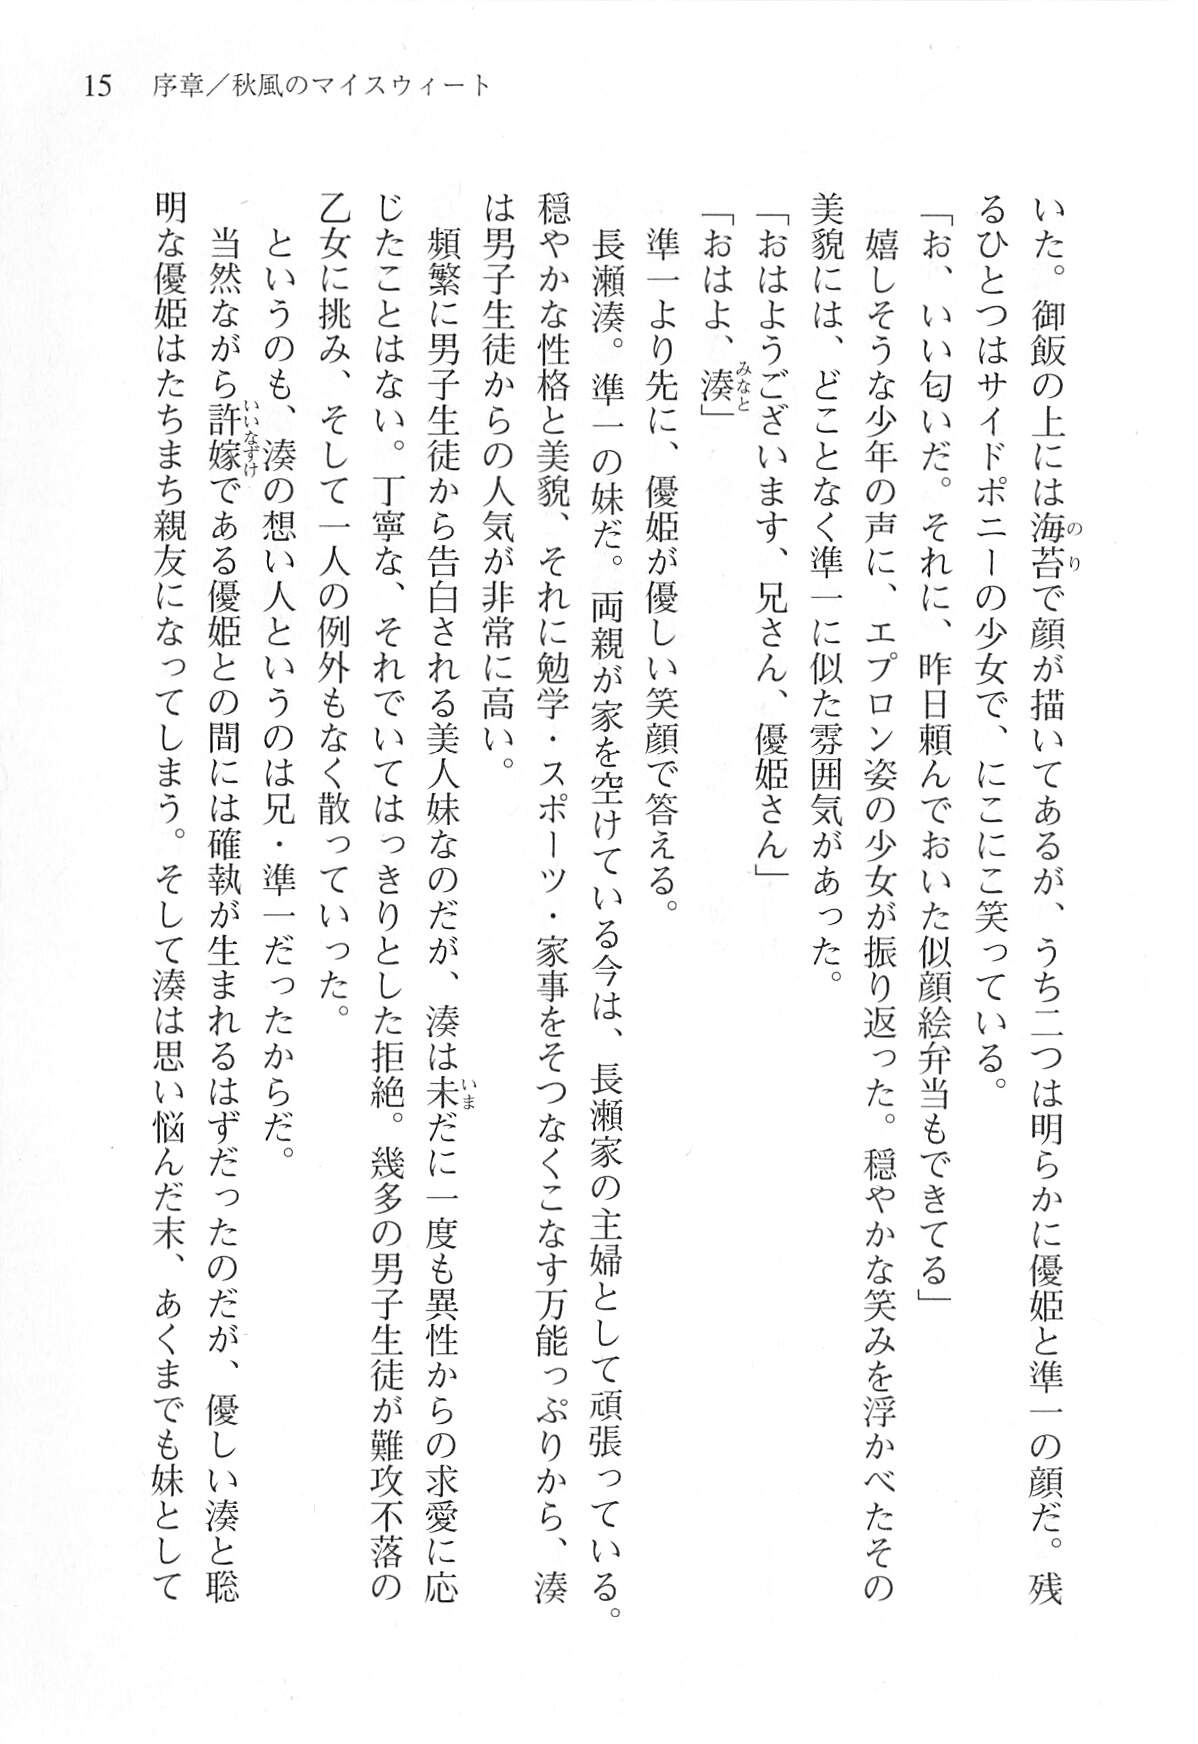 15　序章／秋風のマイスウィート
いた。御飯の上には海苔で顔が描いてあるが、うち二つは明らかに優姫と準一の顔だ。残
るひとつはサイドポニーの少女で、にこにこ笑っている。
「お、いい匂いだ。それに、昨日頼んでおいた似顔絵弁当もできてる」
　嬉しそうな少年の声に、エプロン姿の少女が振り返った。穏やかな笑みを浮かべたその
美貌には、どことなく準一に似た雰囲気があった。
「おはようございます、兄さん、優姫さん」
「おはよ、湊」
　準一より先に、優姫が優しい笑顔で答える。
　長瀬湊。準一の妹だ。両親が家を空けている今は、長瀬家の主婦として頑張っている。
穏やかな性格と美貌、それに勉学・スポーツ・家事をそつなくこなす万能っぷりから、湊
は男子生徒からの人気が非常に高い。
　頻繁に男子生徒から告白される美人妹なのだが、湊は未だに一度も異性からの求愛に応
じたことはない。丁寧な、それでいてはっきりとした拒絶。幾多の男子生徒が難攻不落の
乙女に挑み、そして一人の例外もなく散っていった。
　というのも、湊の想い人というのは兄・準一だったからだ。
　当然ながら許嫁である優姫との間には確執が生まれるはずだったのだが、優しい湊と聡
明な優姫はたちまち親友になってしまう。そして湊は思い悩んだ末、あくまでも妹として
のり
みなと
いま
いいなずけ